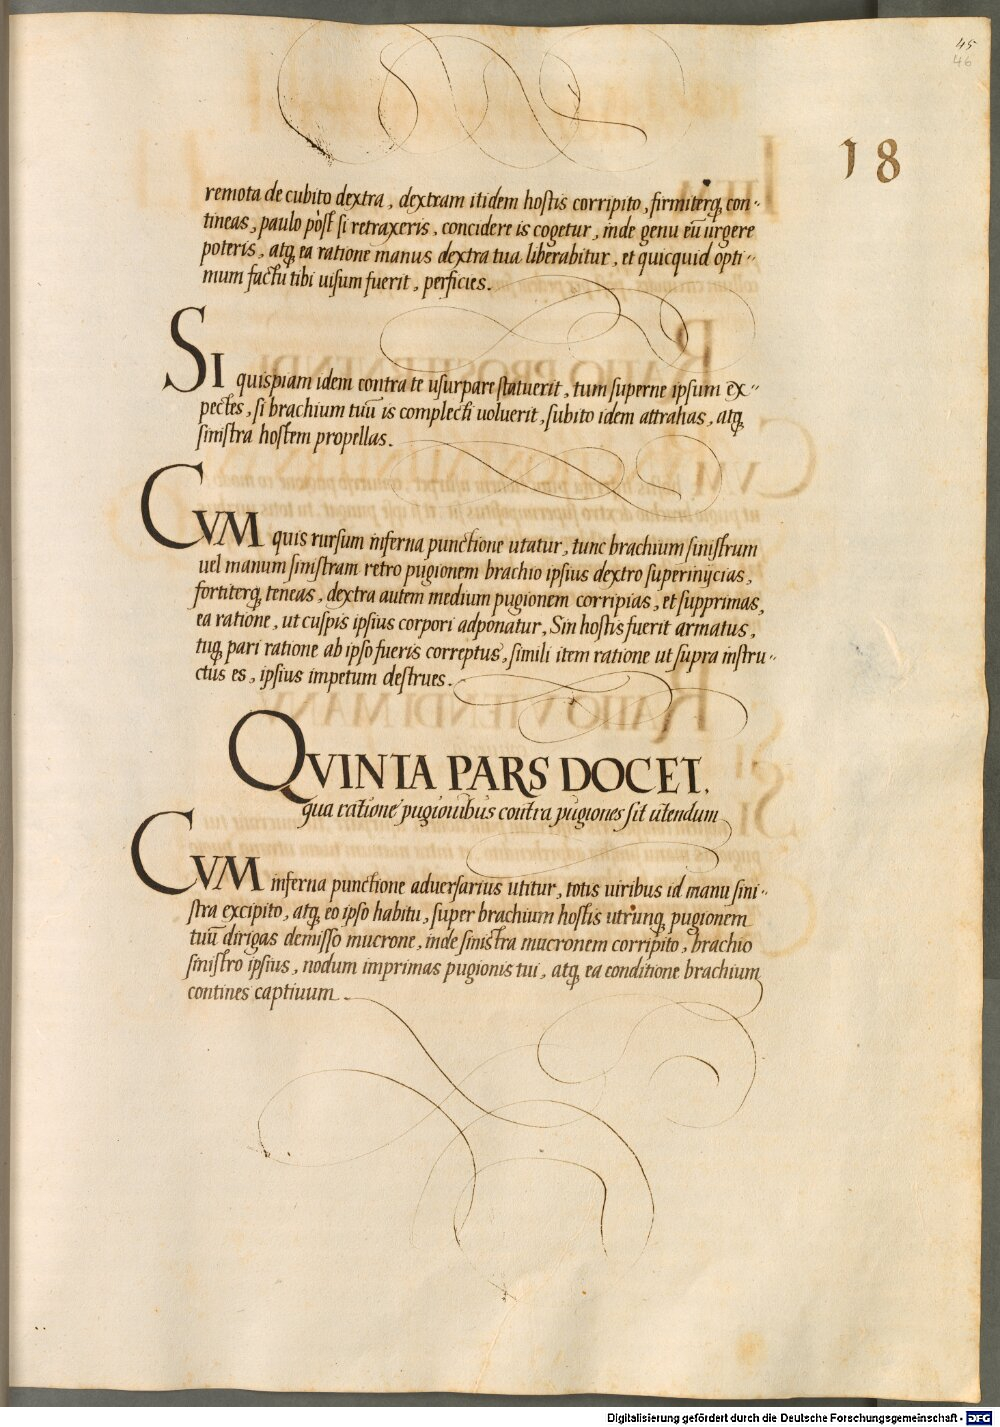 45
46
18
remota de cubito dextra, dextram itidem hostis corripito, firmiterq̨ con-
tineas, paulo pòst si retraxeris, concidere is cogetur, inde genu eũ urgere
poteris, atq̨ ea ratione manus dextra tua liberabitur, et quicquid opti-
mum factu tibi uisum fuerit, perficies.
SI quispiam idem contra te usurpare statuerit, tum superne ipsum ex-
pectes, si brachium tuũ is complecti uoluerit, subito idem attrahas, atq̨
sinistra hostem propellas.
CVM quis rursum inferna punctione utatur, tunc brachium sinistrum
uel manum sinistram retro pugionem brachio ipsius dextro superinijcias,
fortiterq̨ teneas, dextra autem medium pugionem corripias, et supprimas,
ea ratione, ut cuspis ipsius corpori adponatur, Sin hostis fuerit armatus,
tuq̨ pari ratione ab ipso fueris correptus, simili item ratione ut supra instru-
ctus es, ipsius impetum destrues.
QVINTA PARS DOCET,
qua ratione pugionibus contra pugiones sit utendum
CVM inferna punctione aduersarius utitur, totis uiribus id manu sini-
stra excipito, atq̨ eo ipso habitu, super brachium hostis utrunq̨ pugionem
tuũ dirigas demisso mucrone, inde sinistra mucronem corripito, brachio
sinistro ipsius, nodum imprimas pugionis tui, atq̨ ea conditione brachium
contines captiuum.
Digitalisierung gefördert durch die Deutsche Forschungsgemeinschaft - DFG